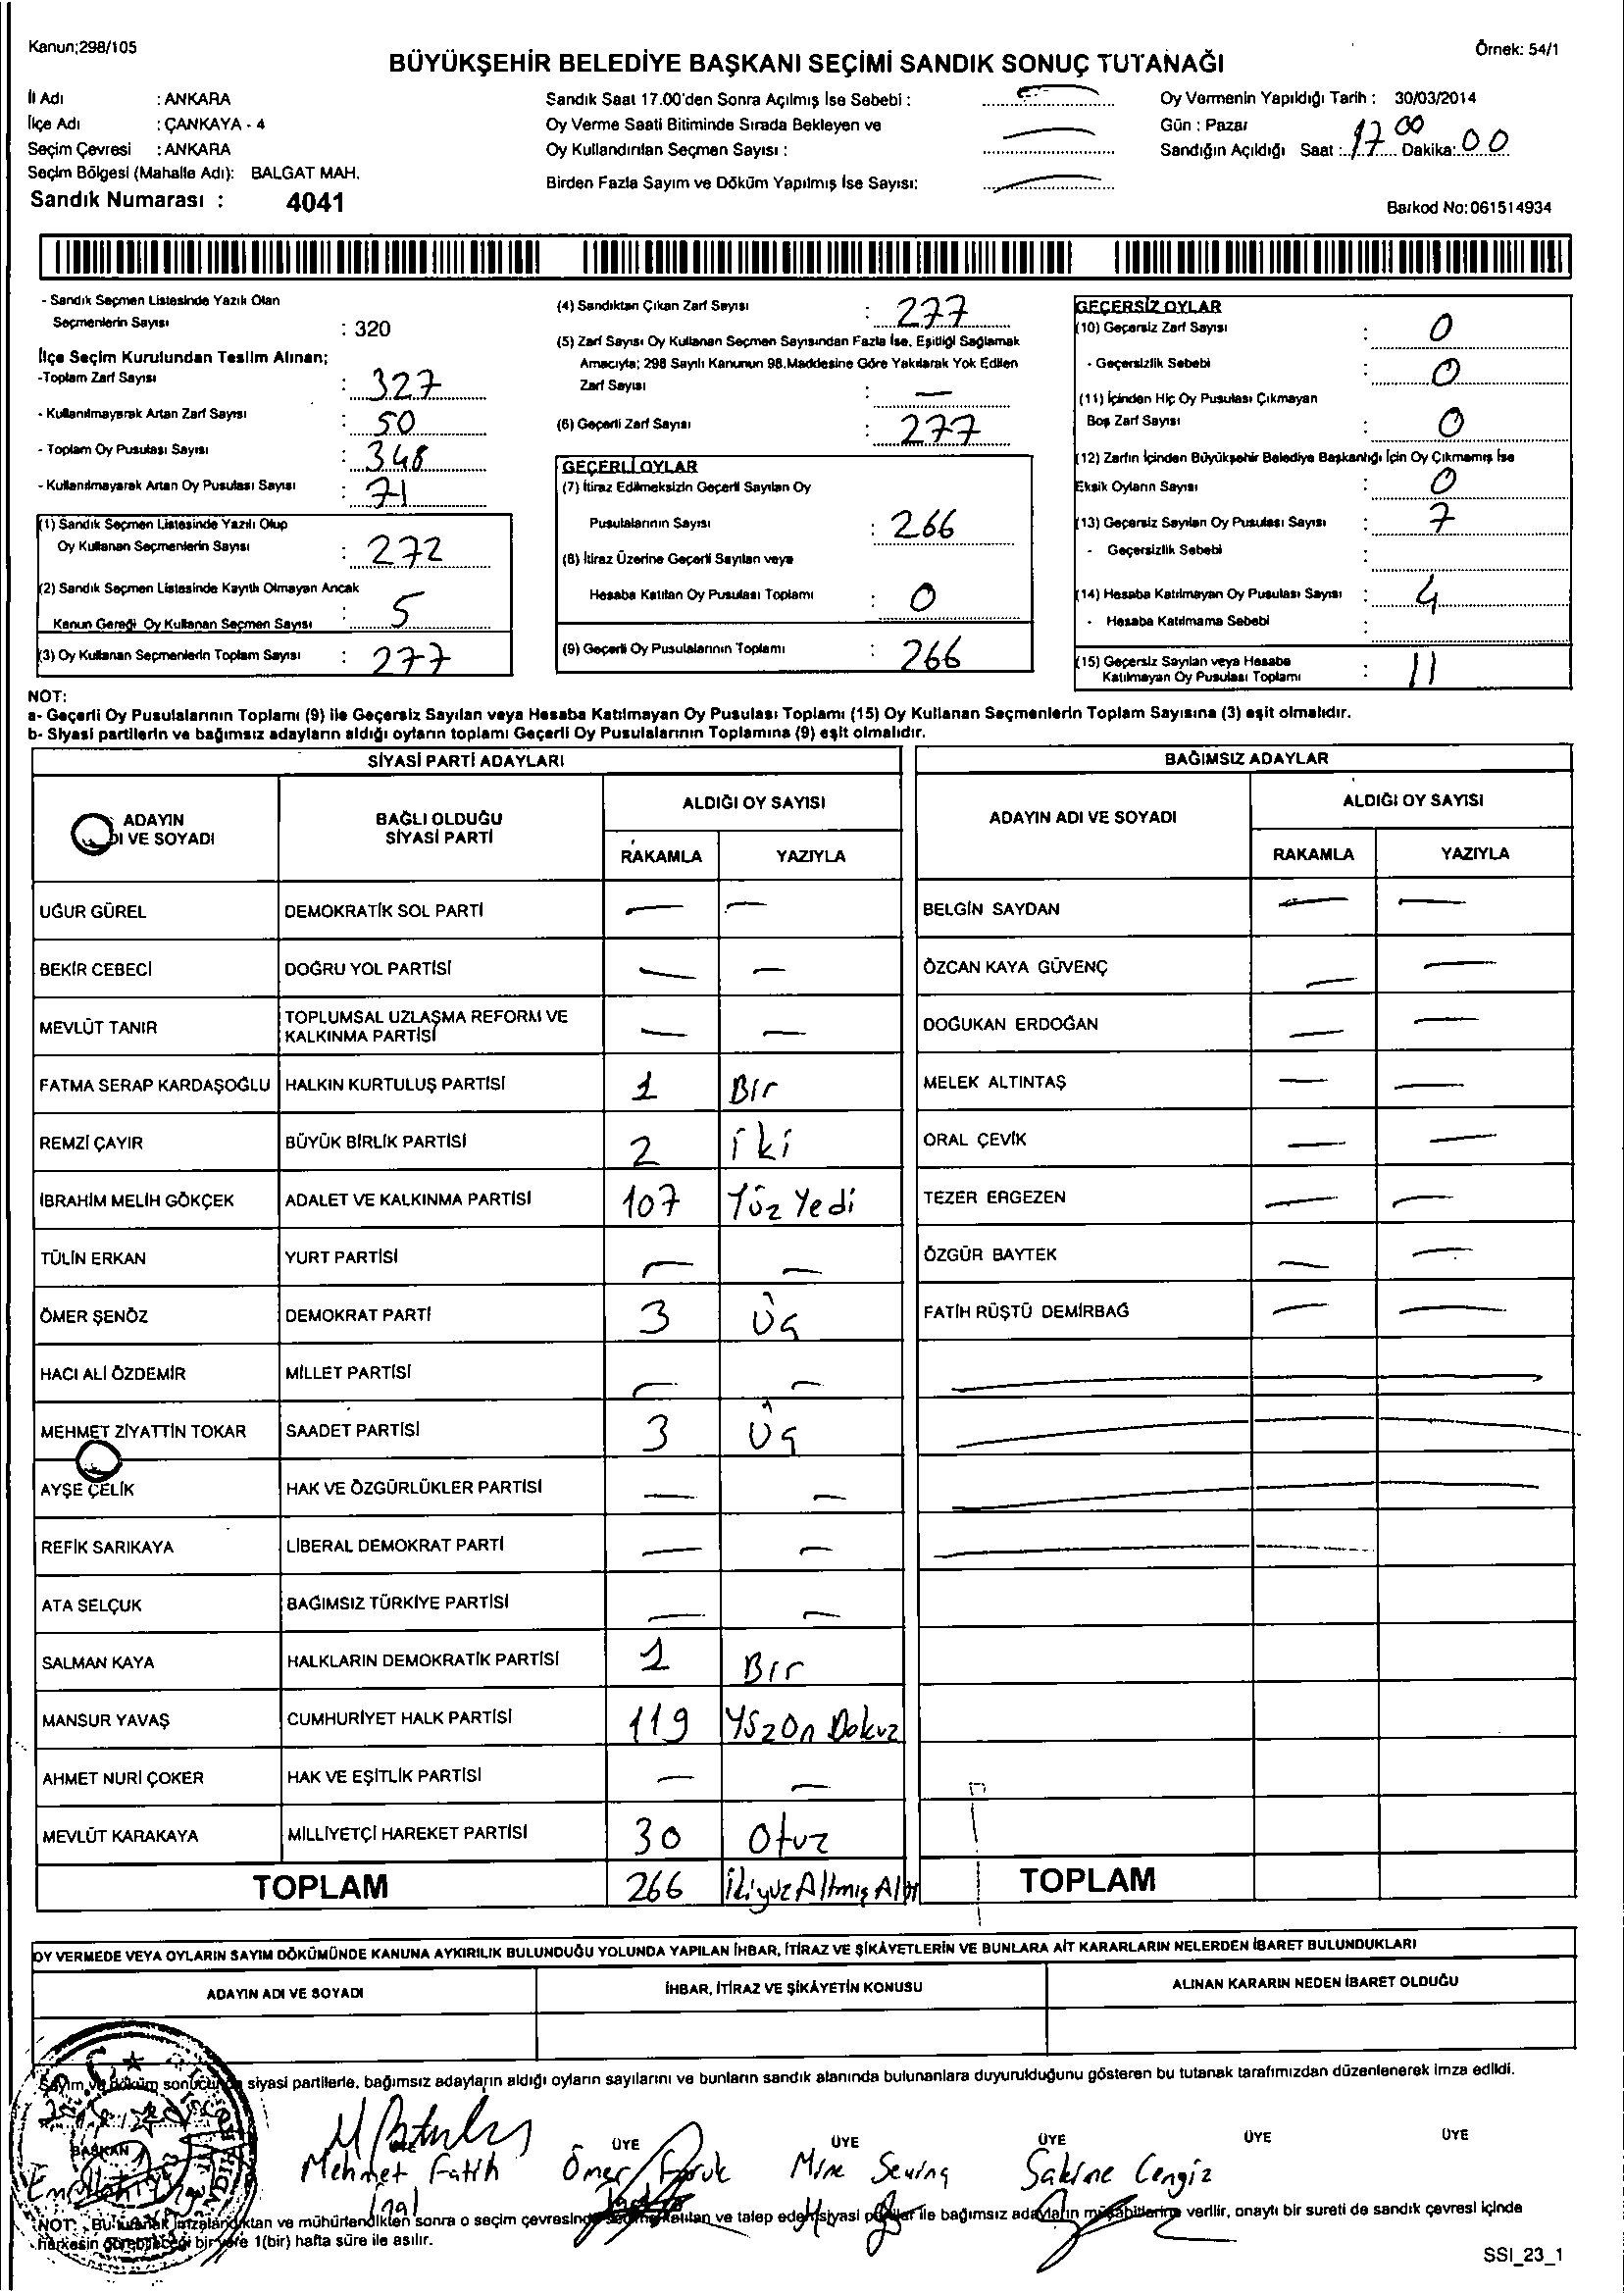 Kanun;298/105
Örnek: 54/1
BÜYÜKŞEHİR BELEDİYE BAŞKANI SEÇİMİ SANDIK SONUÇ TUTANAĞI
İl Adı : ANKARA
İlçe Adı : ÇANKAYA - 4
Seçim Çevresi : ANKARA
Seçim Bölgesi (Mahalle Adı): BALGAT MAH.
Sandık Numarası : 4041
Sandık Saat 17.00'den Sonra Açılmış İse Sebebi :
Oy Verme Saati Bitiminde Sırada Bekleyen ve
Oy Kullandırılan Seçmen Sayısı :
Birden Fazla Sayım ve Döküm Yapılmış İse Sayısı:
Oy Vermenin Yapıldığı Tarih : 30/03/2014
Gün : Pazar
Sandığın Açıldığı Saat : 17 00 Dakika: 00
Barkod No:061514934
- Sandık Seçmen Listesinde Yazılı Olan
Seçmenlerin Sayısı : 320
İlçe Seçim Kurulundan Teslim Alınan;
-Toplam Zarf Sayısı : 327
- Kullanılmayarak Artan Zarf Sayısı : 50
- Toplam Oy Pusulası Sayısı : 348
- Kullanılmayarak Artan Oy Pusulası Sayısı : 71
(1) Sandık Seçmen Listesinde Yazılı Olup
Oy Kullanan Seçmenlerin Sayısı : 272
(2) Sandık Seçmen Listesinde Kayıtlı Olmayan Ancak
Kanun Gereği Oy Kullanan Seçmen Sayısı : 5
(3) Oy Kullanan Seçmenlerin Toplam Sayısı : 277
(4) Sandıktan Çıkan Zarf Sayısı : 277
(5) Zarf Sayısı Oy Kullanan Seçmen Sayısından Fazla İse, Eşitliği Sağlamak
Amacıyla; 298 Sayılı Kanunun 98.Maddesine Göre Yakılarak Yok Edilen
Zarf Sayısı : —
(6) Geçerli Zarf Sayısı : 277
GEÇERLİ OYLAR
(7) İtiraz Edilmeksizin Geçerli Sayılan Oy
Pusulalarının Sayısı : 266
(8) İtiraz Üzerine Geçerli Sayılan veya
Hesaba Katılan Oy Pusulası Toplamı : 0
(9) Geçerli Oy Pusulalarının Toplamı : 266
GEÇERSİZ OYLAR
(10) Geçersiz Zarf Sayısı : 0
- Geçersizlik Sebebi : 0
(11) İçinden Hiç Oy Pusulası Çıkmayan
Boş Zarf Sayısı : 0
(12) Zarfın İçinden Büyükşehir Belediye Başkanlığı İçin Oy Çıkmamış İse
Eksik Oyların Sayısı : 0
(13) Geçersiz Sayılan Oy Pusulası Sayısı : 7
- Geçersizlik Sebebi :
(14) Hesaba Katılmayan Oy Pusulası Sayısı : 4
- Hesaba Katılmama Sebebi :
(15) Geçersiz Sayılan veya Hesaba
Katılmayan Oy Pusulası Toplamı : 11
NOT:
a- Geçerli Oy Pusulalarının Toplamı (9) ile Geçersiz Sayılan veya Hesaba Katılmayan Oy Pusulası Toplamı (15) Oy Kullanan Seçmenlerin Toplam Sayısına (3) eşit olmalıdır.
b- Siyasi partilerin ve bağımsız adayların aldığı oyların toplamı Geçerli Oy Pusulalarının Toplamına (9) eşit olmalıdır.
SİYASİ PARTİ ADAYLARI
ADAYIN
DI VE SOYADI
BAĞLI OLDUĞU
SİYASİ PARTİ
ALDIĞI OY SAYISI
RAKAMLA YAZIYLA
UĞUR GÜREL DEMOKRATİK SOL PARTİ — —
BEKİR CEBECİ DOĞRU YOL PARTİSİ — —
MEVLÜT TANIR TOPLUMSAL UZLAŞMA REFORM VE
KALKINMA PARTİSİ — —
FATMA SERAP KARDAŞOĞLU HALKIN KURTULUŞ PARTİSİ 1 Bir
REMZİ ÇAYIR BÜYÜK BİRLİK PARTİSİ 2 iki
İBRAHİM MELİH GÖKÇEK ADALET VE KALKINMA PARTİSİ 107 Yüz Yedi
TÜLİN ERKAN YURT PARTİSİ — —
ÖMER ŞENÖZ DEMOKRAT PARTİ 3 Üç
HACI ALİ ÖZDEMİR MİLLET PARTİSİ — —
MEHMET ZİYATTİN TOKAR SAADET PARTİSİ 3 Üç
AYŞE ÇELİK HAK VE ÖZGÜRLÜKLER PARTİSİ — —
REFİK SARIKAYA LİBERAL DEMOKRAT PARTİ — —
ATA SELÇUK BAĞIMSIZ TÜRKİYE PARTİSİ — —
SALMAN KAYA HALKLARIN DEMOKRATİK PARTİSİ 1 Bir
MANSUR YAVAŞ CUMHURİYET HALK PARTİSİ 119 Yüz On Dokuz
AHMET NURİ ÇOKER HAK VE EŞİTLİK PARTİSİ — —
MEVLÜT KARAKAYA MİLLİYETÇİ HAREKET PARTİSİ 30 Otuz
TOPLAM 266 İkiyüz Altmış Altı
BAĞIMSIZ ADAYLAR
ADAYIN ADI VE SOYADI
ALDIĞI OY SAYISI
RAKAMLA YAZIYLA
BELGİN SAYDAN — —
ÖZCAN KAYA GÜVENÇ — —
DOĞUKAN ERDOĞAN — —
MELEK ALTINTAŞ — —
ORAL ÇEVİK — —
TEZER ERGEZEN — —
ÖZGÜR BAYTEK — —
FATİH RÜŞTÜ DEMİRBAĞ — —
TOPLAM
OY VERMEDE VEYA OYLARIN SAYIM DÖKÜMÜNDE KANUNA AYKIRILIK BULUNDUĞU YOLUNDA YAPILAN İHBAR, İTİRAZ VE ŞİKÂYETLERİN VE BUNLARA AİT KARARLARIN NELERDEN İBARET BULUNDUKLARI
ADAYIN ADI VE SOYADI
İHBAR, İTİRAZ VE ŞİKÂYETİN KONUSU
ALINAN KARARIN NEDEN İBARET OLDUĞU
Sayım ve döküm sonucunda siyasi partilerle, bağımsız adayların aldığı oyların sayılarını ve bunların sandık alanında bulunanlara duyurulduğunu gösteren bu tutanak tarafımızdan düzenlenerek imza edildi.
BAŞKAN ÜYE ÜYE ÜYE ÜYE ÜYE
Mehmet Fatih Ömer Faruk Mine Sevinç Sakine Cengiz
İnal
NOT: Bu tutanak imzalandıktan ve mühürlendikten sonra o seçim çevresinde seçime katılan ve talep eden siyasi partiler ile bağımsız adayların müşahitlerine verilir, onaylı bir sureti de sandık çevresi içinde
herkesin görebileceği bir yere 1(bir) hafta süre ile asılır.
SSI_23_1